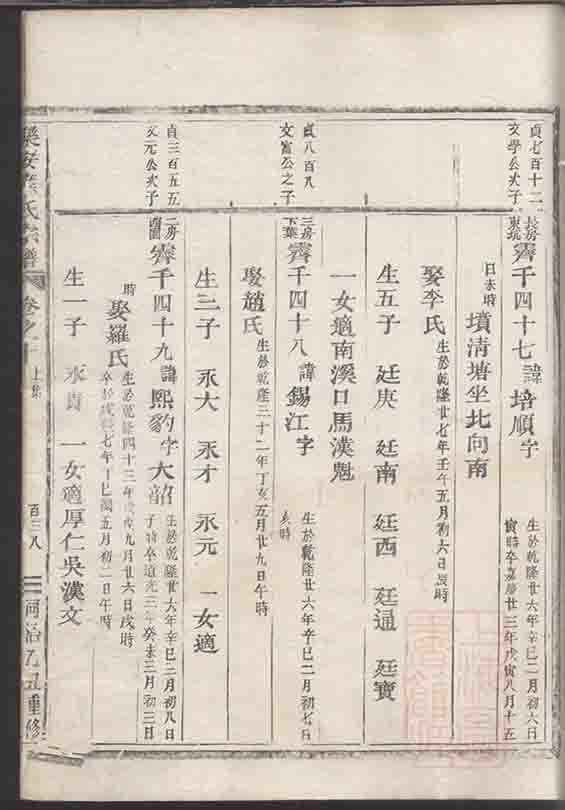 貞七百十二
文學公次子
長房
東坑
霽千四十七 諱 培順 字
生於乾隆廿六年辛巳二月初六日
寅時卒嘉慶廿三年戊寅八月十五
日未時
墳清塘坐北向南
娶李氏
生於乾隆廿七年壬午五月初六日辰時
生五子 廷庚 廷南 廷西 廷通 廷寶
一女適南溪口馬漢魁
貞八百八
文富公之子
三房
下葉
霽千四十八 諱 錫江 字
生於乾隆廿六年辛巳二月初七日
亥時
娶趙氏
生於乾隆三十二年丁亥五月廿九日午時
生三子 永大 永才 永元 一女適
貞三百五五
文元公次子
二房
霽千四十九 諱 熙豹 字 大韶
生於乾隆廿六年辛巳三月初八日
子時卒道光三年癸未三月初三日
時
娶羅氏
生於乾隆四十三年戊戌九月廿六日戌時
七年丁巳閏五月初二日午時
生一子 永貴 一女適厚仁吳漢文
氏宗譜 卷之十 上集 百三八 重修